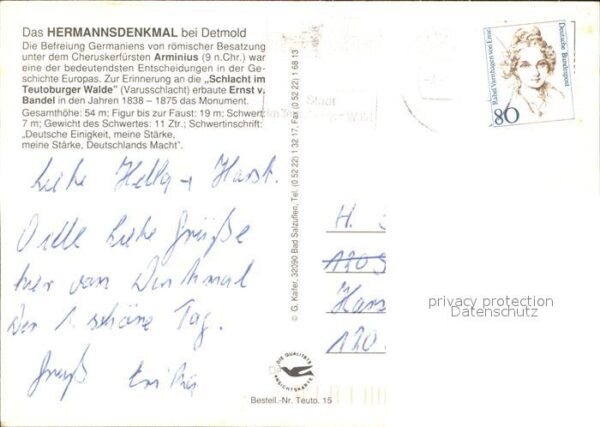 Das HERMANNSDENKMAL bei Detmold
Die Befreiung Germaniens von römischer Besatzung
unter dem Cheruskerfürsten Arminius (9 n.Chr.) war
eine der bedeutendsten Entscheidungen in der Ge-
schichte Europas. Zur Erinnerung an die „Schlacht im
Teutoburger Walde" (Varusschlacht) erbaute Ernst v.
Bandel in den Jahren 1838 – 1875 das Monument.
Gesamthöhe: 54 m; Figur bis zur Faust: 19 m; Schwert:
7 m; Gewicht des Schwertes: 11 Ztr.; Schwertinschrift:
„Deutsche Einigkeit, meine Stärke,
meine Stärke, Deutschlands Macht".
Liebe Hella + Horst.
Viele liebe Grüße
hier vom Denkmal
Der 1. schöne Tag.
Gruß Erika
© G. Kaifer, 32090 Bad Salzuflen, Tel. (0 52 22) 1 32 17, Fax (0 52 22) 1 68 13
Stadt
Rahel Varnhagen von Ense
Deutsche Bundespost
80
H.
120
Hans
120
privacy protection
Datenschutz
DIE QUALITÄTS
ANSICHTSKARTE
Bestell.-Nr. Teuto. 15